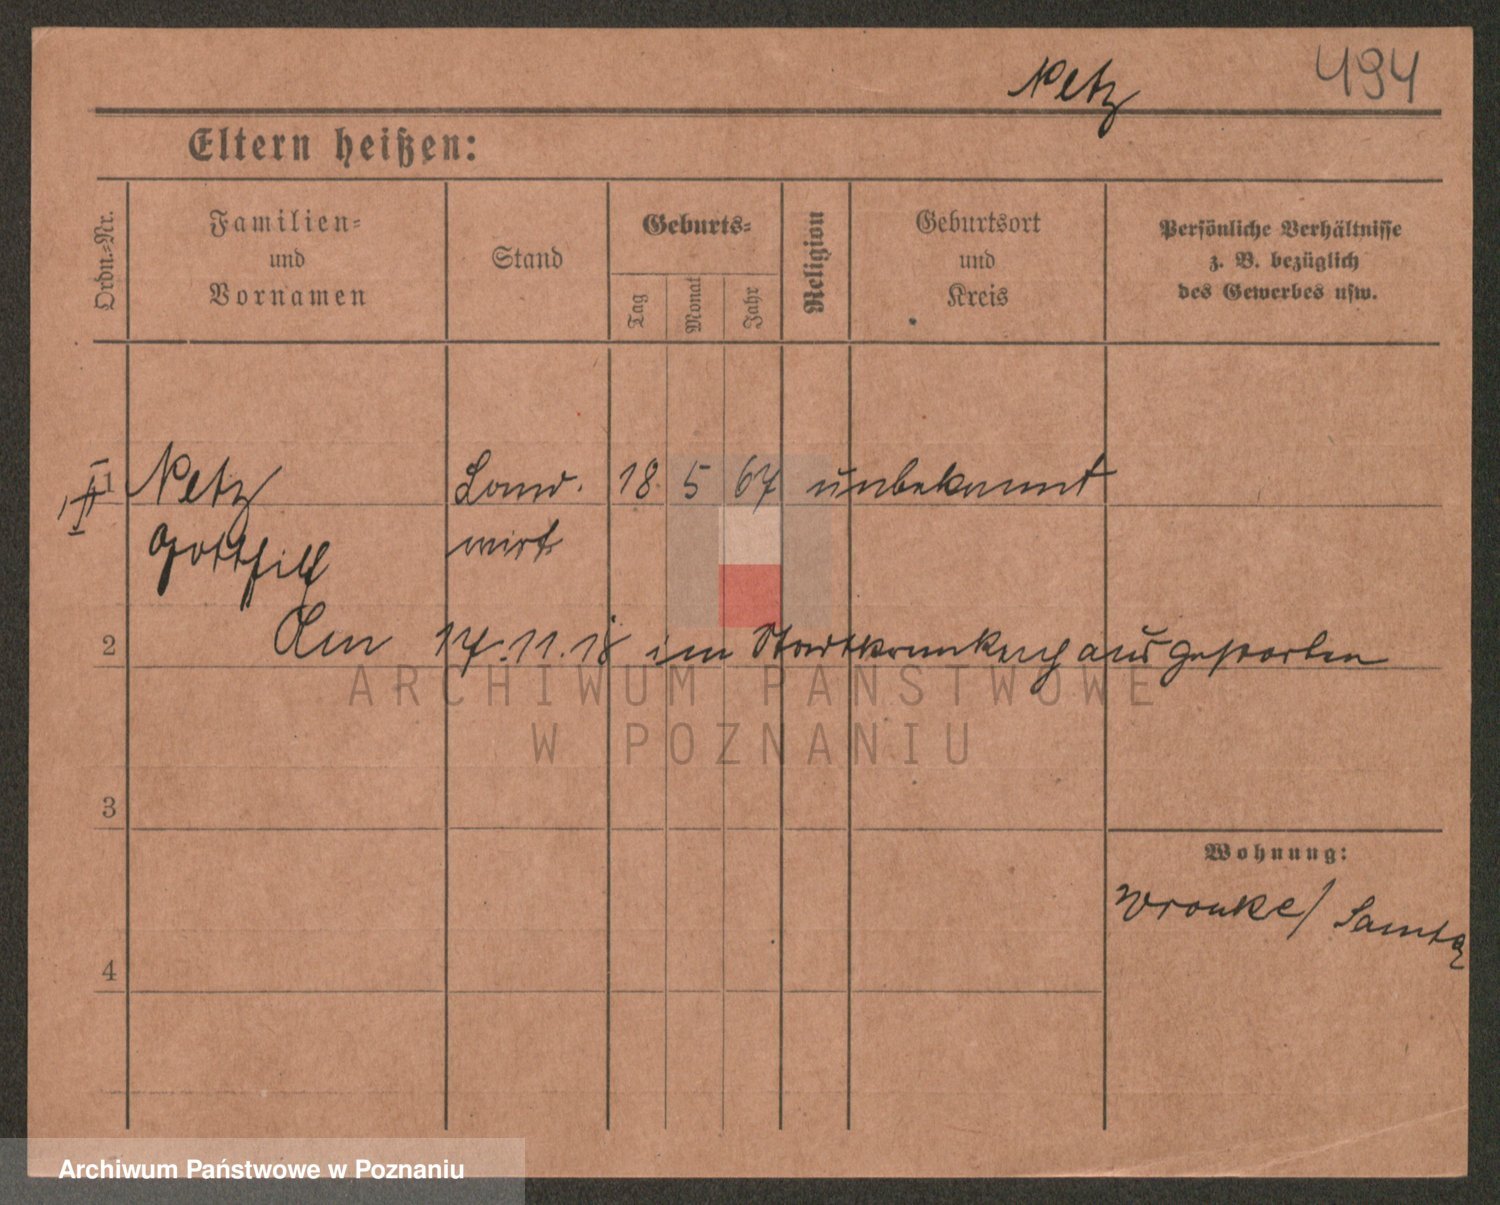 Netz 494
Eltern heißen:
Ordn.=Nr.
Familien=
und
Vornamen
Stand
Geburts=
Tag
Monat
Jahr
Religion
Geburtsort
und
Kreis
Persönliche Verhältnisse
z. B. bezüglich
des Gewerbes usw.
1 Netz Landw. 18. 5 67 unbekannt
Gotthilf wirt
2 Am 17.11.18 im Stadtkrankenhaus gestorben
ARCHIWUM PAŃSTWOWE
W POZNANIU
3
Wohnung:
Wronke/ Samter
4
Archiwum Państwowe w Poznaniu